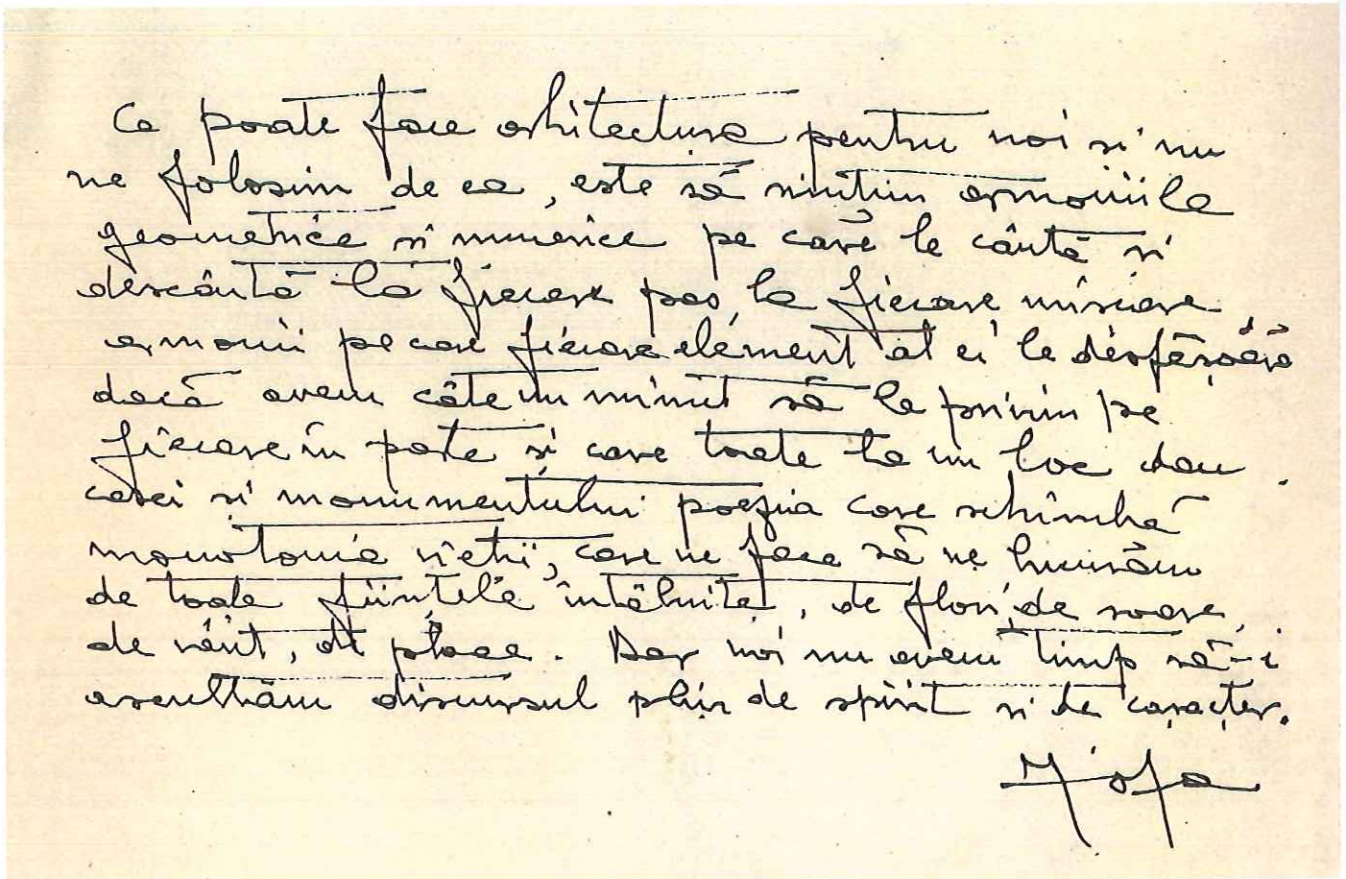 Ce poate face arhitectura pentru noi și nu
ne folosim de ea, este să simțim armoniile
geometrice și numerice pe care le cântă și
descântă la fiecare pas, la fiecare mișcare,
armonii pe care fiecare element al ei le desfășoară
dacă avem câte un minut să le privim pe
fiecare în parte și care toate la un loc dau
casei și monumentului poezia care schimbă
monotonia vieții, care ne face să ne bucurăm
de toate ființele întâlnite, de flori, de soare,
de vânt, de ploae. Dar noi nu avem timp să-i
ascultăm discursul plin de spirit și de caracter.